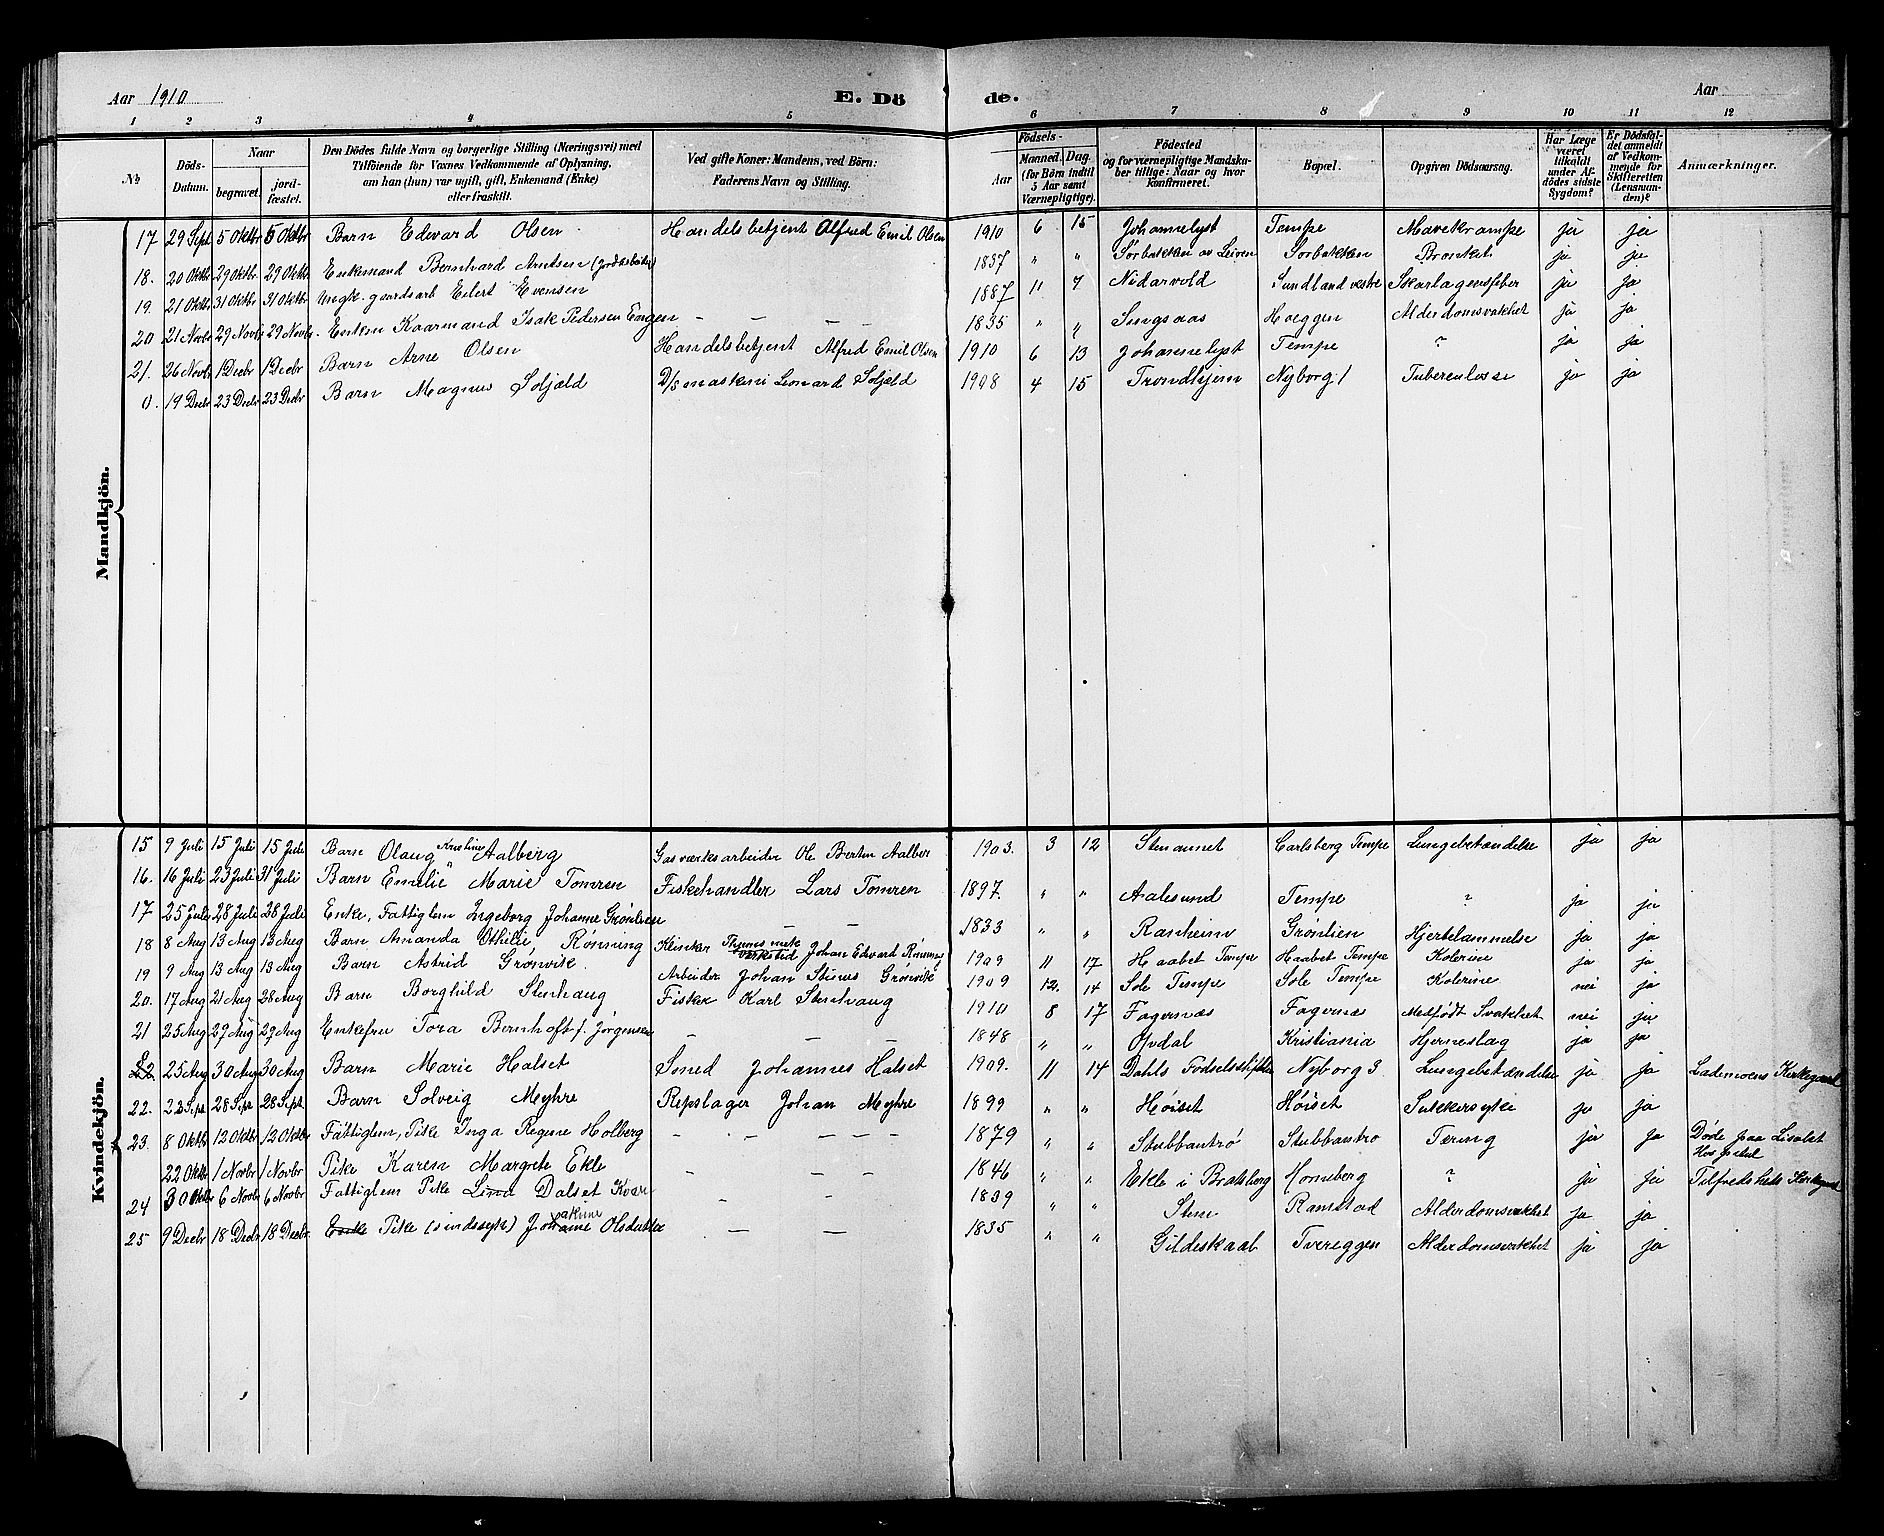 Aar 1910 E. Dö de. Aar
1 2 3 4 5 6 7 8 9 10 11 12
№ Döds-Datum. Naar begravet. jord-fæstet. Den Dödes fulde Navn og borgerlige Stilling (Næringsvei) med Tilföiende for Voxnes Vedkommende af Oplysning, om han (hun) var ugift, gift, Enkemand (Enke) eller fraskilt. Ved gifte Koner: Mandens, ved Börn: Faderens Navn og Stilling. Födsels- Aar Maaned. Dag. (for Börn indtil 5 Aar samt Værnepligtige). Födested og for værnepligtige Mandskaber tillige: Naar og hvor konfirmeret. Bopæl. Opgiven Dödsaarsag. Har Læge været tilkaldt under Afdödes sidste Sygdom? Er Dödsfaldet anmeldt af Vedkommende for Skifteretten (Lensmanden)? Anmærkninger.
Mandkjön.
17 29 Sept 5 Oktbr 5 Oktbr Barn Edvard Olsen Handelsbetjent Alfred Emil Olsen 1910 6 15 Johannelyst Tempe Mavekrampe ja ja
18. 20 Oktb 29 Oktbr 29 Oktb Enkemand Bernhard Arntsen 1837 " " Sørbakken av Leiren Sorbakken Bronkit ja ja
19. 21 Oktb 31 Oktbr 31 Oktb Ungk. gaardsarb Eilert Evensen 1887 11 7 Nidarvold Sundland vestre Skarlagensfeber ja ja
20 21 Novbr 29 Novbr 29 Novbr. Enkem Kaarmand Isak Pedersen Engen – – – 1835 " " Singsaas Hoeggen Alderdomsvakhet ja ja
21. 26 Novbr 1 Decbr 1 Decbr Barn Arne Olsen Handelsbetjent Alfred Emil Olsen 1910 6 13 Johannelyst Tempe ? ja ja
0. 19 Decbr 23 Decbr 23 Decbr Barn Magnus Soljeld D/s maskini Leonard Soljeld 1908 4 15 Trondhjem Nyborg 1 Tuberculose ja ja
Kvindekjön.
15 9 Juli 15 Juli 15 Juli Barn Olaug Kristine Aalberg Gasværksarbeider Ole Bertin Aalber 1903. 3 12 Stenaunet Carlsberg Tempe Lungebetændelse ja ja
16. 16 Juli 23 Juli 31 Juli Barn Emelie Marie Tomren Fiskehandler Lars Tomren 1897. " " Aalesund Tempe ? ja ja
17 25 Juli 28 Juli 28 Juli Enke, Fattiglem Ingeborg Johanne Grønlien – – 1833 " " Ranheim Grønlien Hjertelammelse ja ja
18 8 Aug 13 Aug 13 Aug Barn Amanda Othilie, Rønning Klinker Thmes mek verksted Johan Edvard Rønning 1909 11 17 Haabet Tempe Haabet Tempe Kolerine ja ja
19 9 Aug 13 Aug 13 Aug Barn Astrid Grønvik. Arbeider Johan Stinus Grønvik 1909 12. 14 Sole Tempe Sole Tempe Kolerine nei ja
20. 17 Aug 21 Aug 28 Aug Barn Borghild Stenhaug Fisker Karl Stenhaug 1910 8 17 Fagernæs Fagernæs Medfødt Svakhet nei ja
21 25 Aug 29 Aug 29 Aug Enkefru Tora Bernhoft f. Jørgensen – – – 1848 " " Opdal Kristiania Hjerneslag ja ja
25 Aug 30 Aug 30 Aug Barn Marie Halset Smed Johannes Halset 1909. 11 14 Dahls Fødselsstiftelse Nyborg 3 Lungebetændelse ja ja Lademoens Kirkegaard
22. 22 Sept 28 Sept 28 Sept Barn Solveig Meyhre Repslager Johan Meyhre 1899 " " Høiset Høiset Sukkersyke ja ja
23. 8 Oktbr 12 Oktbr 12 Oktbr Fattiglem, Pike Inga Regine Holberg – – – – – 1879 " " Stubbantrø Stubbantrø Tæring ja ja Døde paa Lisabet Hospital
22 Oktb 1 Novbr 1 Novbr Pike Karen Margrete Ekle – – – 1846 " " Ekle i Bratsberg Horneberg ? ja ja Tilfredshets Kirkegaard
24 30 Oktbr 6 Novbr 6 Novbr Fattiglem Pike Lina Dalset Kvar – – 1839 " " Stene Ranstad Alderdomsvakhet ja ja
25 9 Decbr 18 Decbr 18 Decbr. Enke Pike (sindssyk) Joakime Olsdatter – – 1835 " " Gildeskaal Tvereggen Alderdomsvakhet ja ja